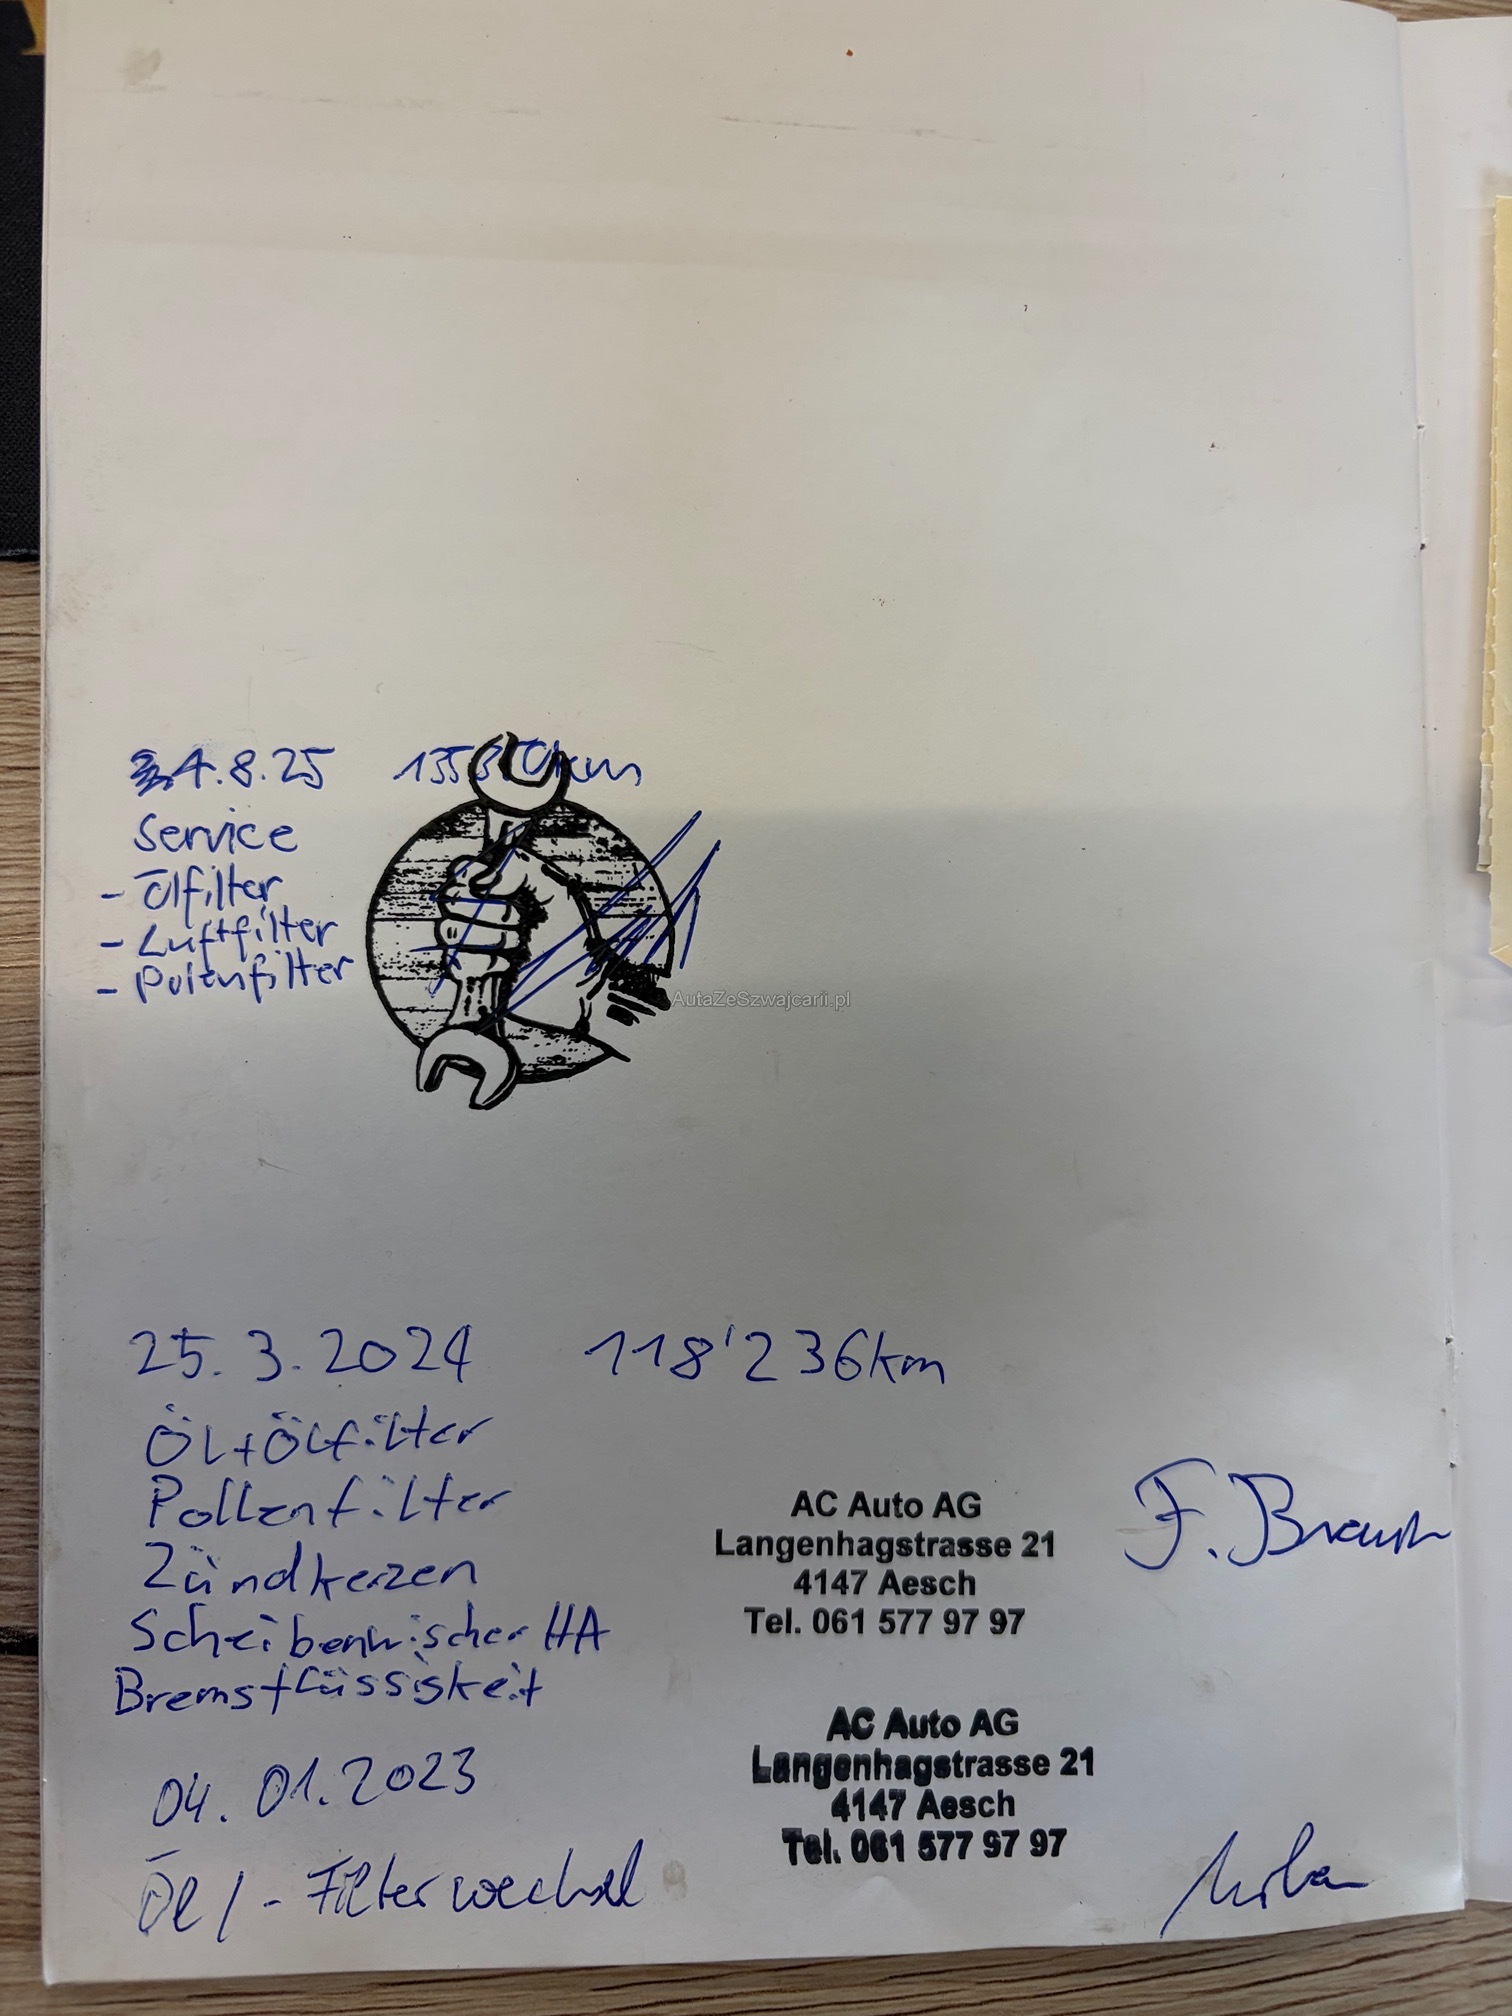 4.8.25
Service
- Ölfilter
- Luftfilter
- Polenfilter
AutaZeSzwajcarii.pl
25.3.2024 118'236km
ÖL+Ölfilter
Pollenfilter
Zündkerzen
Scheibenwischer HA
Bremsflüssigkeit
AC Auto AG
Langenhagstrasse 21
4147 Aesch
Tel. 061 577 97 97
F.
04.01.2023
Öl/-Filterwechsel
AC Auto AG
Langenhagstrasse 21
4147 Aesch
Tel. 061 577 97 97